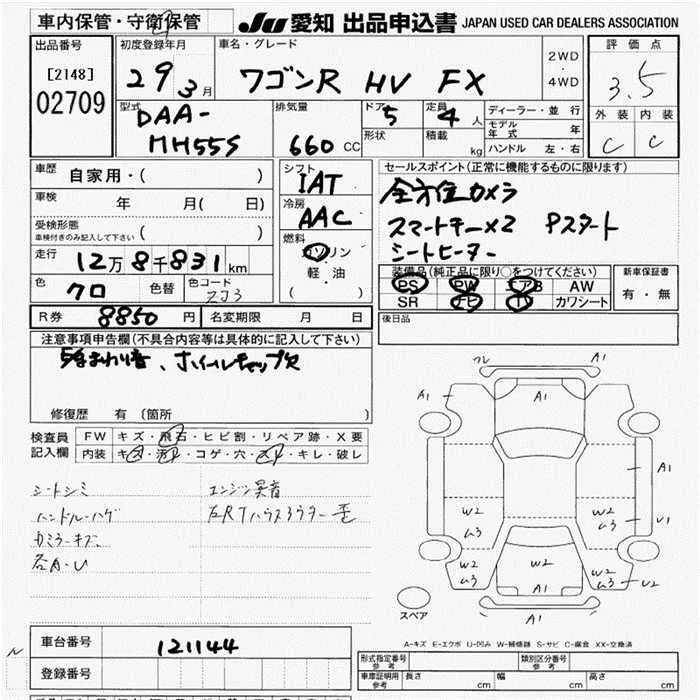 車内保管・守衛保管
JU 愛知 出品申込書 JAPAN USED CAR DEALERS ASSOCIATION
出品番号
[2148]
02709
初度登録年月
29 3月
車名・グレード
ワゴンR HV FX
2WD
・
4WD
評価点
3.5
外装 内装
C C
型式
DAA-
MH55S
排気量
660 CC
ドア
5
形状
定員
4人
積載
kg
ディーラー・並行
モデル年式 年
ハンドル 左・右
車歴
自家用・( )
車検
年 月( 日)
受検形態
車検付きのみ記入して下さい ( )
走行
12万8千831km
色
クロ
色替
色コード
ZJ3
シフト
IAT
冷房
AAC
燃料
ガソリン
軽油
( )
セールスポイント(正常に機能するものに限ります)
全方位カメラ
スマートキー×2 Pスタート
シートヒーター
装備品(純正品に限り○をつけてください)
PS PW エアB AW
SR ナビ TV カワシート
新車保証書
有・無
R券 8850円
名変期限 月 日
後日品
注意事項申告欄(不具合内容等は具体的に記入して下さい)
、ホイールキャップ欠
修復歴 有(箇所 )
検査員記入欄
FW キズ・飛石・ヒビ割・リペア跡・X要
内装 キズ・汚れ・コゲ・穴・スレ・キレ・破レ
シートシミ
エンジン異音
ハンドル・ハゲ
左RTハウスアウター歪
カミラーキズ
各A・U
ワレ
A1
A1
A1
A1
W2
ム3
W2
ム3
U1
W2
ム3
W2
W2
ム3
U2
W2
A1
A1
スペア
A-キズ E-エクボ U-凹み W-補修跡 S-サビ C-腐食 XX-交換済
車台番号
121144
登録番号
形式指定番号 参考
類別区分番号 参考
車庫証明用 参考
長さ cm
幅 cm
高さ cm